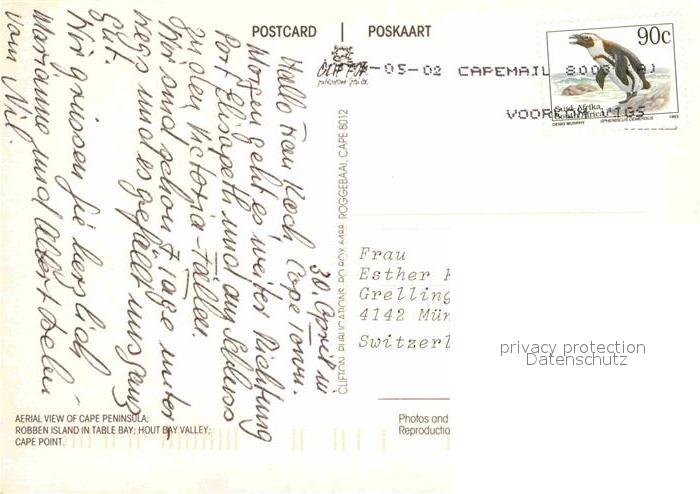 POSTCARD | POSKAART
90c
-05-02 CAPEMAIL 8003
VOOR
Suid-Afrika
South Africa
DENIS MURPHY
SPHENISCUS DEMERSUS
1993
CLIFTON PUBLICATIONS, PO BOX 4488, ROGGEBAAI, CAPE 8012
30 April in
Hallo Frau Koch, Cape Town.
Morgen geht es weiter Richtung
Port Elisabeth und am Schluss
zu den Victoria-Fällen.
Wir sind schon 7 Tage unter
wegs und es gefällt uns ganz
gut.
Wir grüssen Sie herzlich
Marianne und Albert
vom Nil.
Frau
Esther
Grelling
4142 Mün
Switzerl
privacy protection
Datenschutz
AERIAL VIEW OF CAPE PENINSULA;
ROBBEN ISLAND IN TABLE BAY; HOUT BAY VALLEY;
CAPE POINT.
Photos and
Reproductio